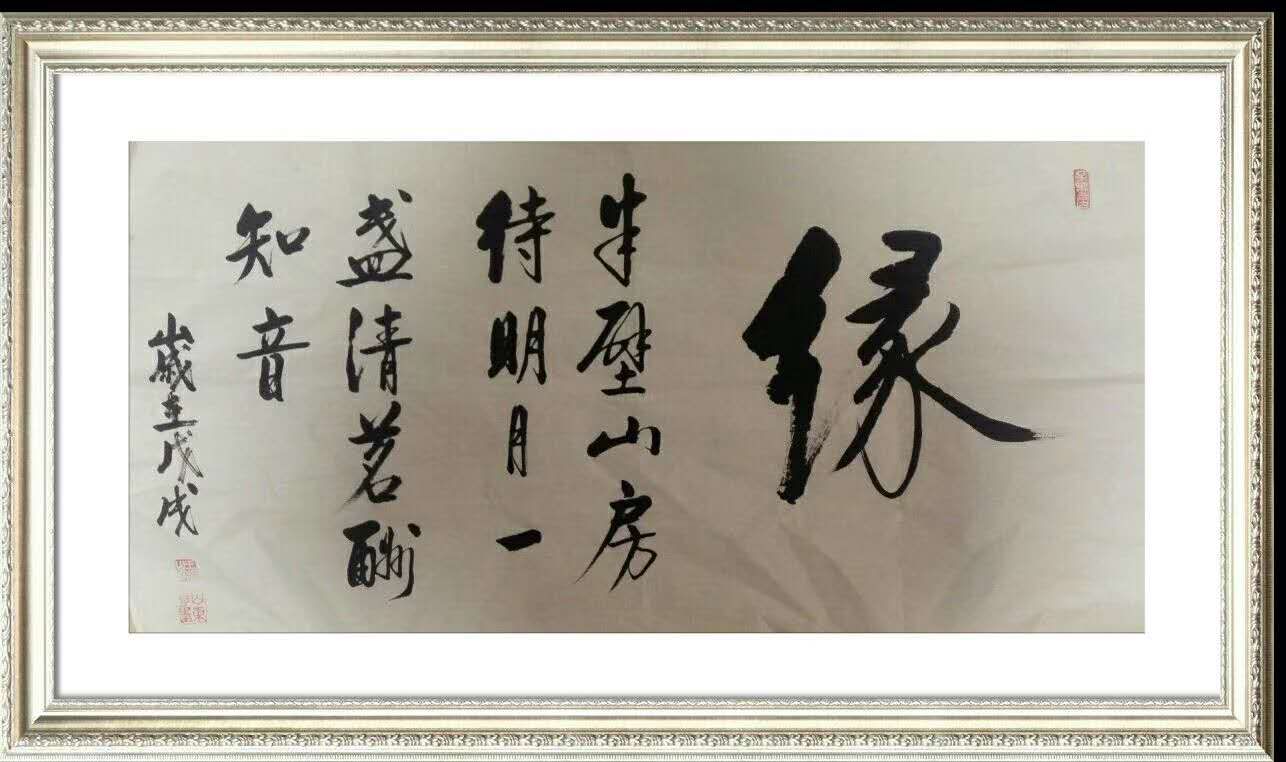 缘
半壁山房
待明月一
盏清茗酬
知音
岁在戊戌